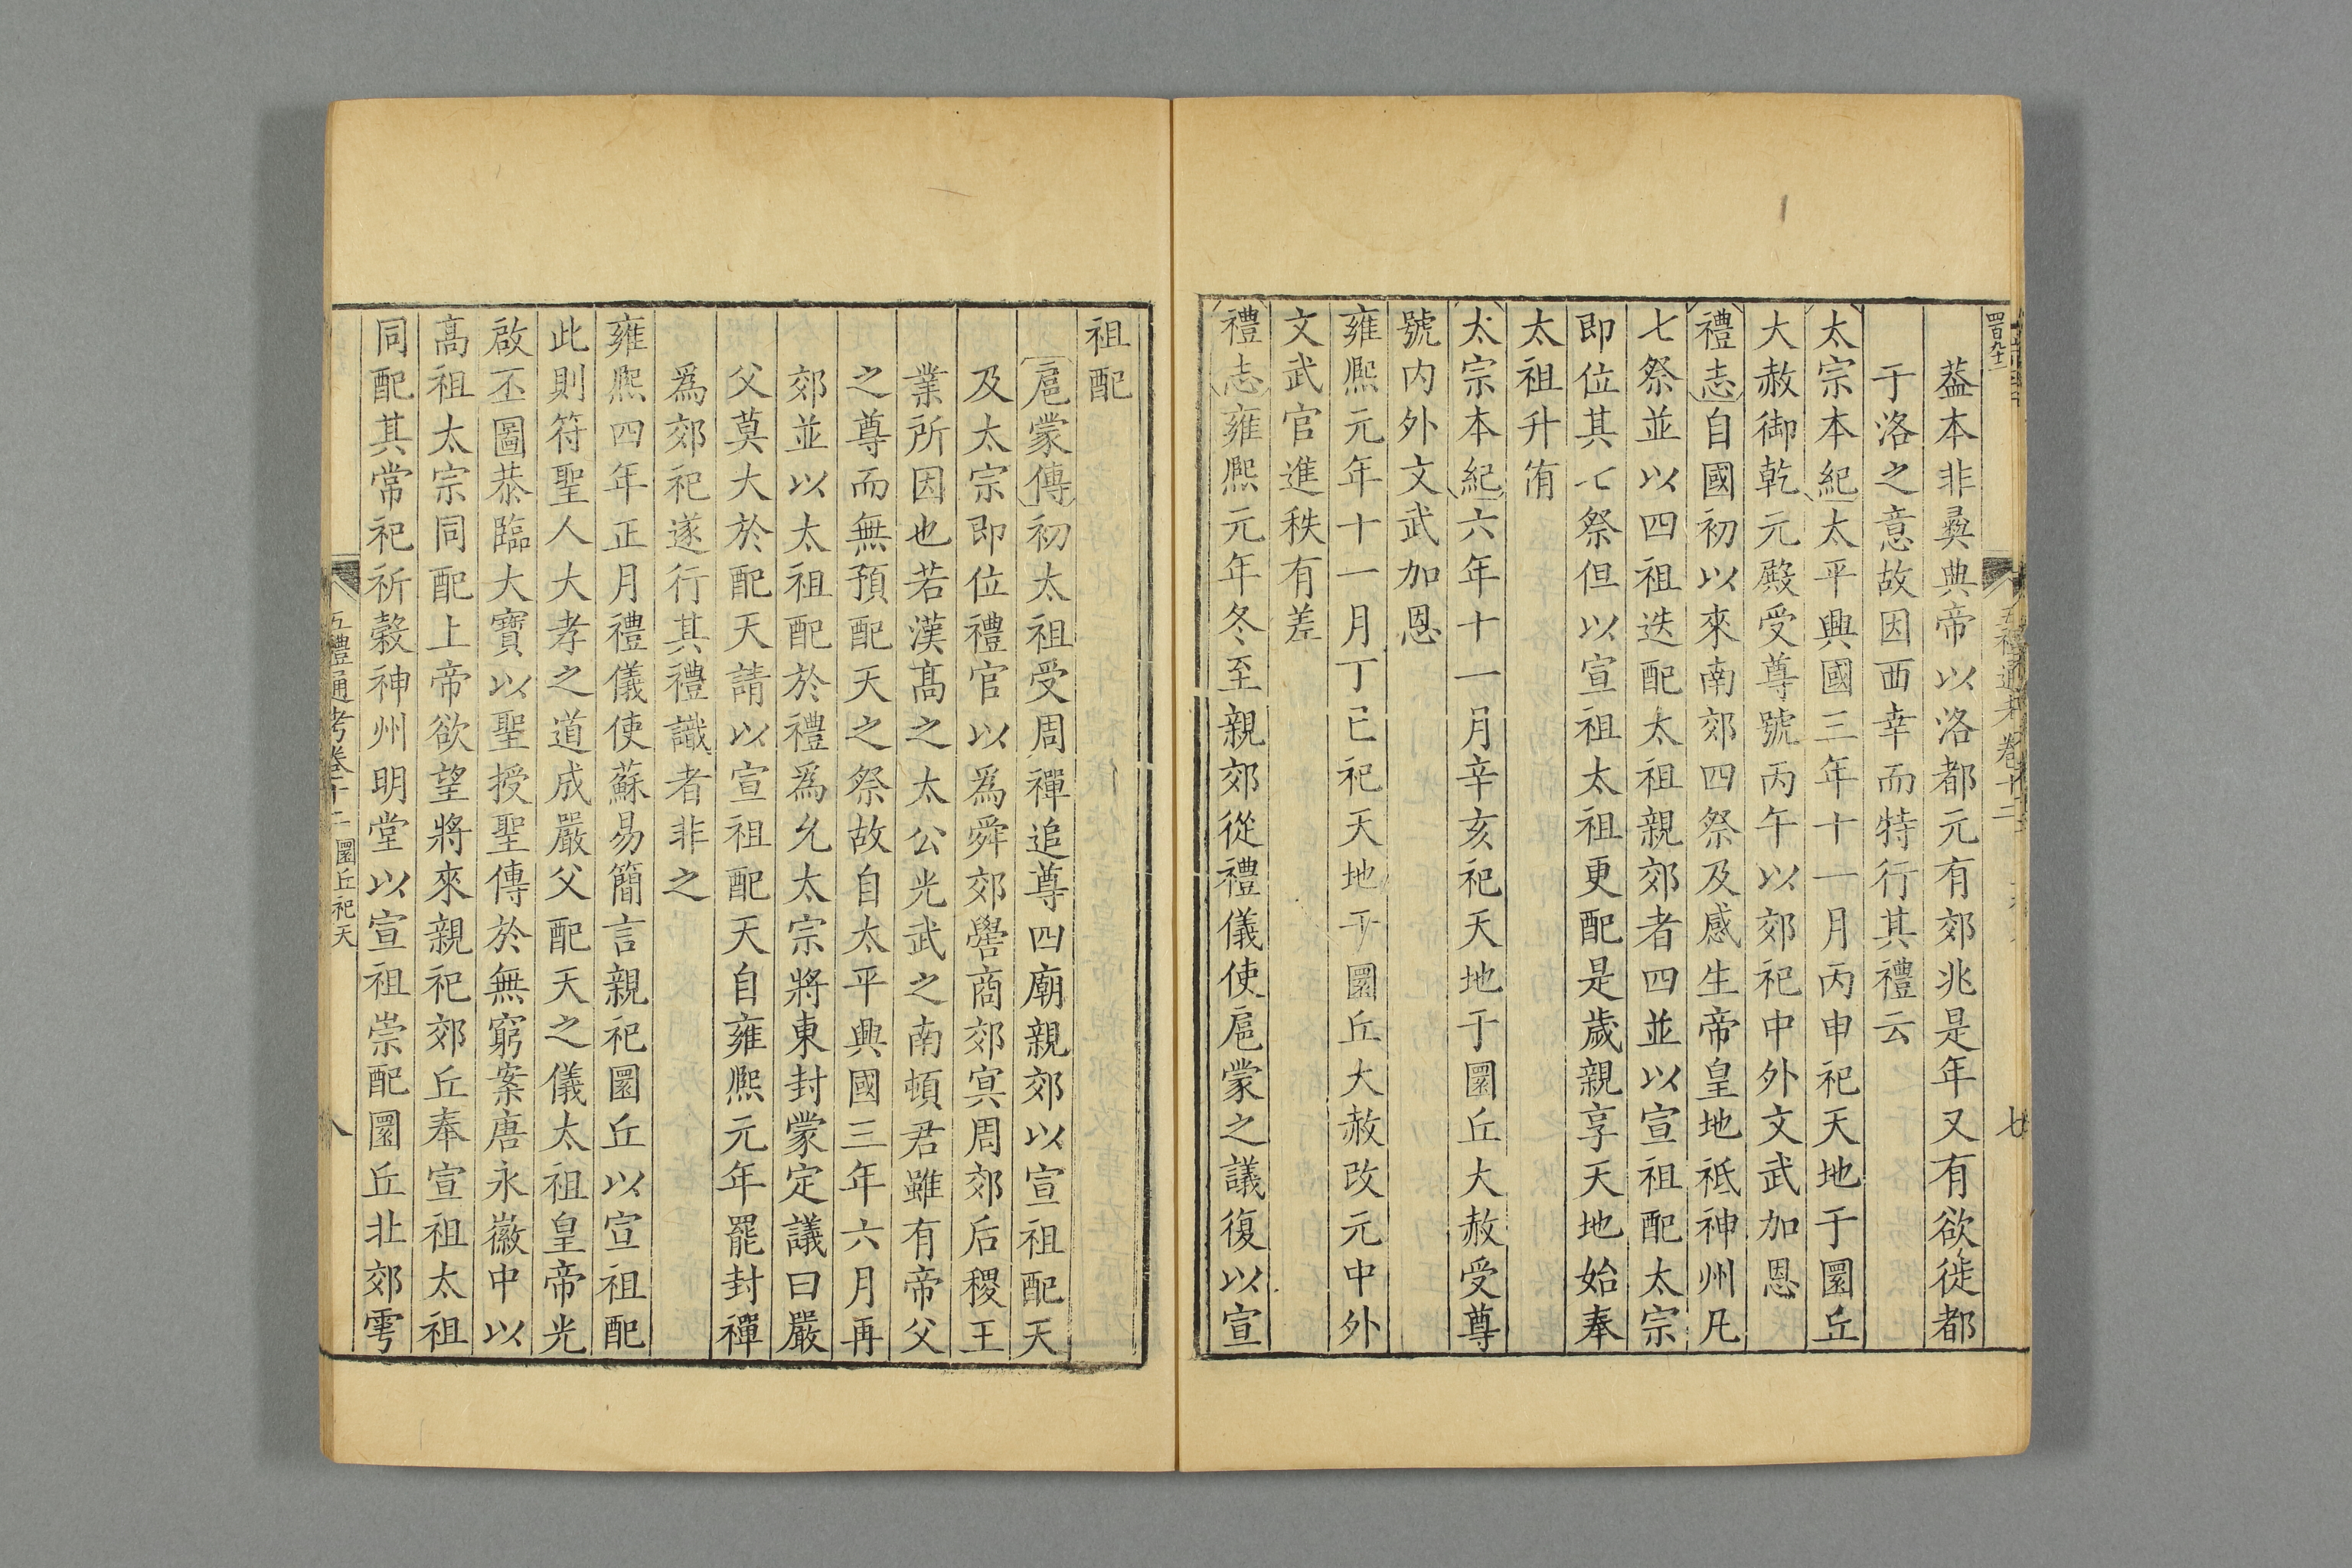 四百九十二
葢本非彛典帝以洛都元有郊兆是年又有欲徙都
于洛之意故因西幸而特行其禮云
太宗本紀太平興國三年十一月丙申祀天地于圜丘
大赦御乾元殿受尊號丙午以郊祀中外文武加恩
禮志自國初以來南郊四祭及感生帝皇地祗神州凡
七祭並以四祖迭配太祖親郊者四並以宣祖配太宗
即位其七祭但以宣祖太祖更配是歲親享天地始奉
太祖升侑
太宗本紀六年十一月辛亥祀天地于圜丘大赦受尊
號内外文武加恩
雍熈元年十一月丁巳祀天地于圜丘大赦改元中外
文武官進秩有差
禮志雍熈元年冬至親郊從禮儀使扈蒙之議復以宣
祖配
扈蒙傳初太祖受周禪追尊四廟親郊以宣祖配天
及太宗即位禮官以爲舜郊嚳商郊冥周郊后稷王
業所因也若漢髙之太公光武之南頓君雖有帝父
之尊而無預配天之祭故自太平興國三年六月再
郊並以太祖配於禮爲允太宗將東封蒙定議曰嚴
父莫大於配天請以宣祖配天自雍熈元年罷封禪
爲郊祀遂行其禮識者非之
雍熈四年正月禮儀使蘇易簡言親祀圜丘以宣祖配
此則符聖人大孝之道成嚴父配天之儀太祖皇帝光
啟丕圖恭臨大寶以聖授聖傳於無窮案唐永徽中以
高祖太宗同配上帝欲望將來親祀郊丘奉宣祖太祖
同配其常祀祈榖神州明堂以宣祖崇配圜丘北郊雩
五禮通考卷十二 圜丘祀天 八